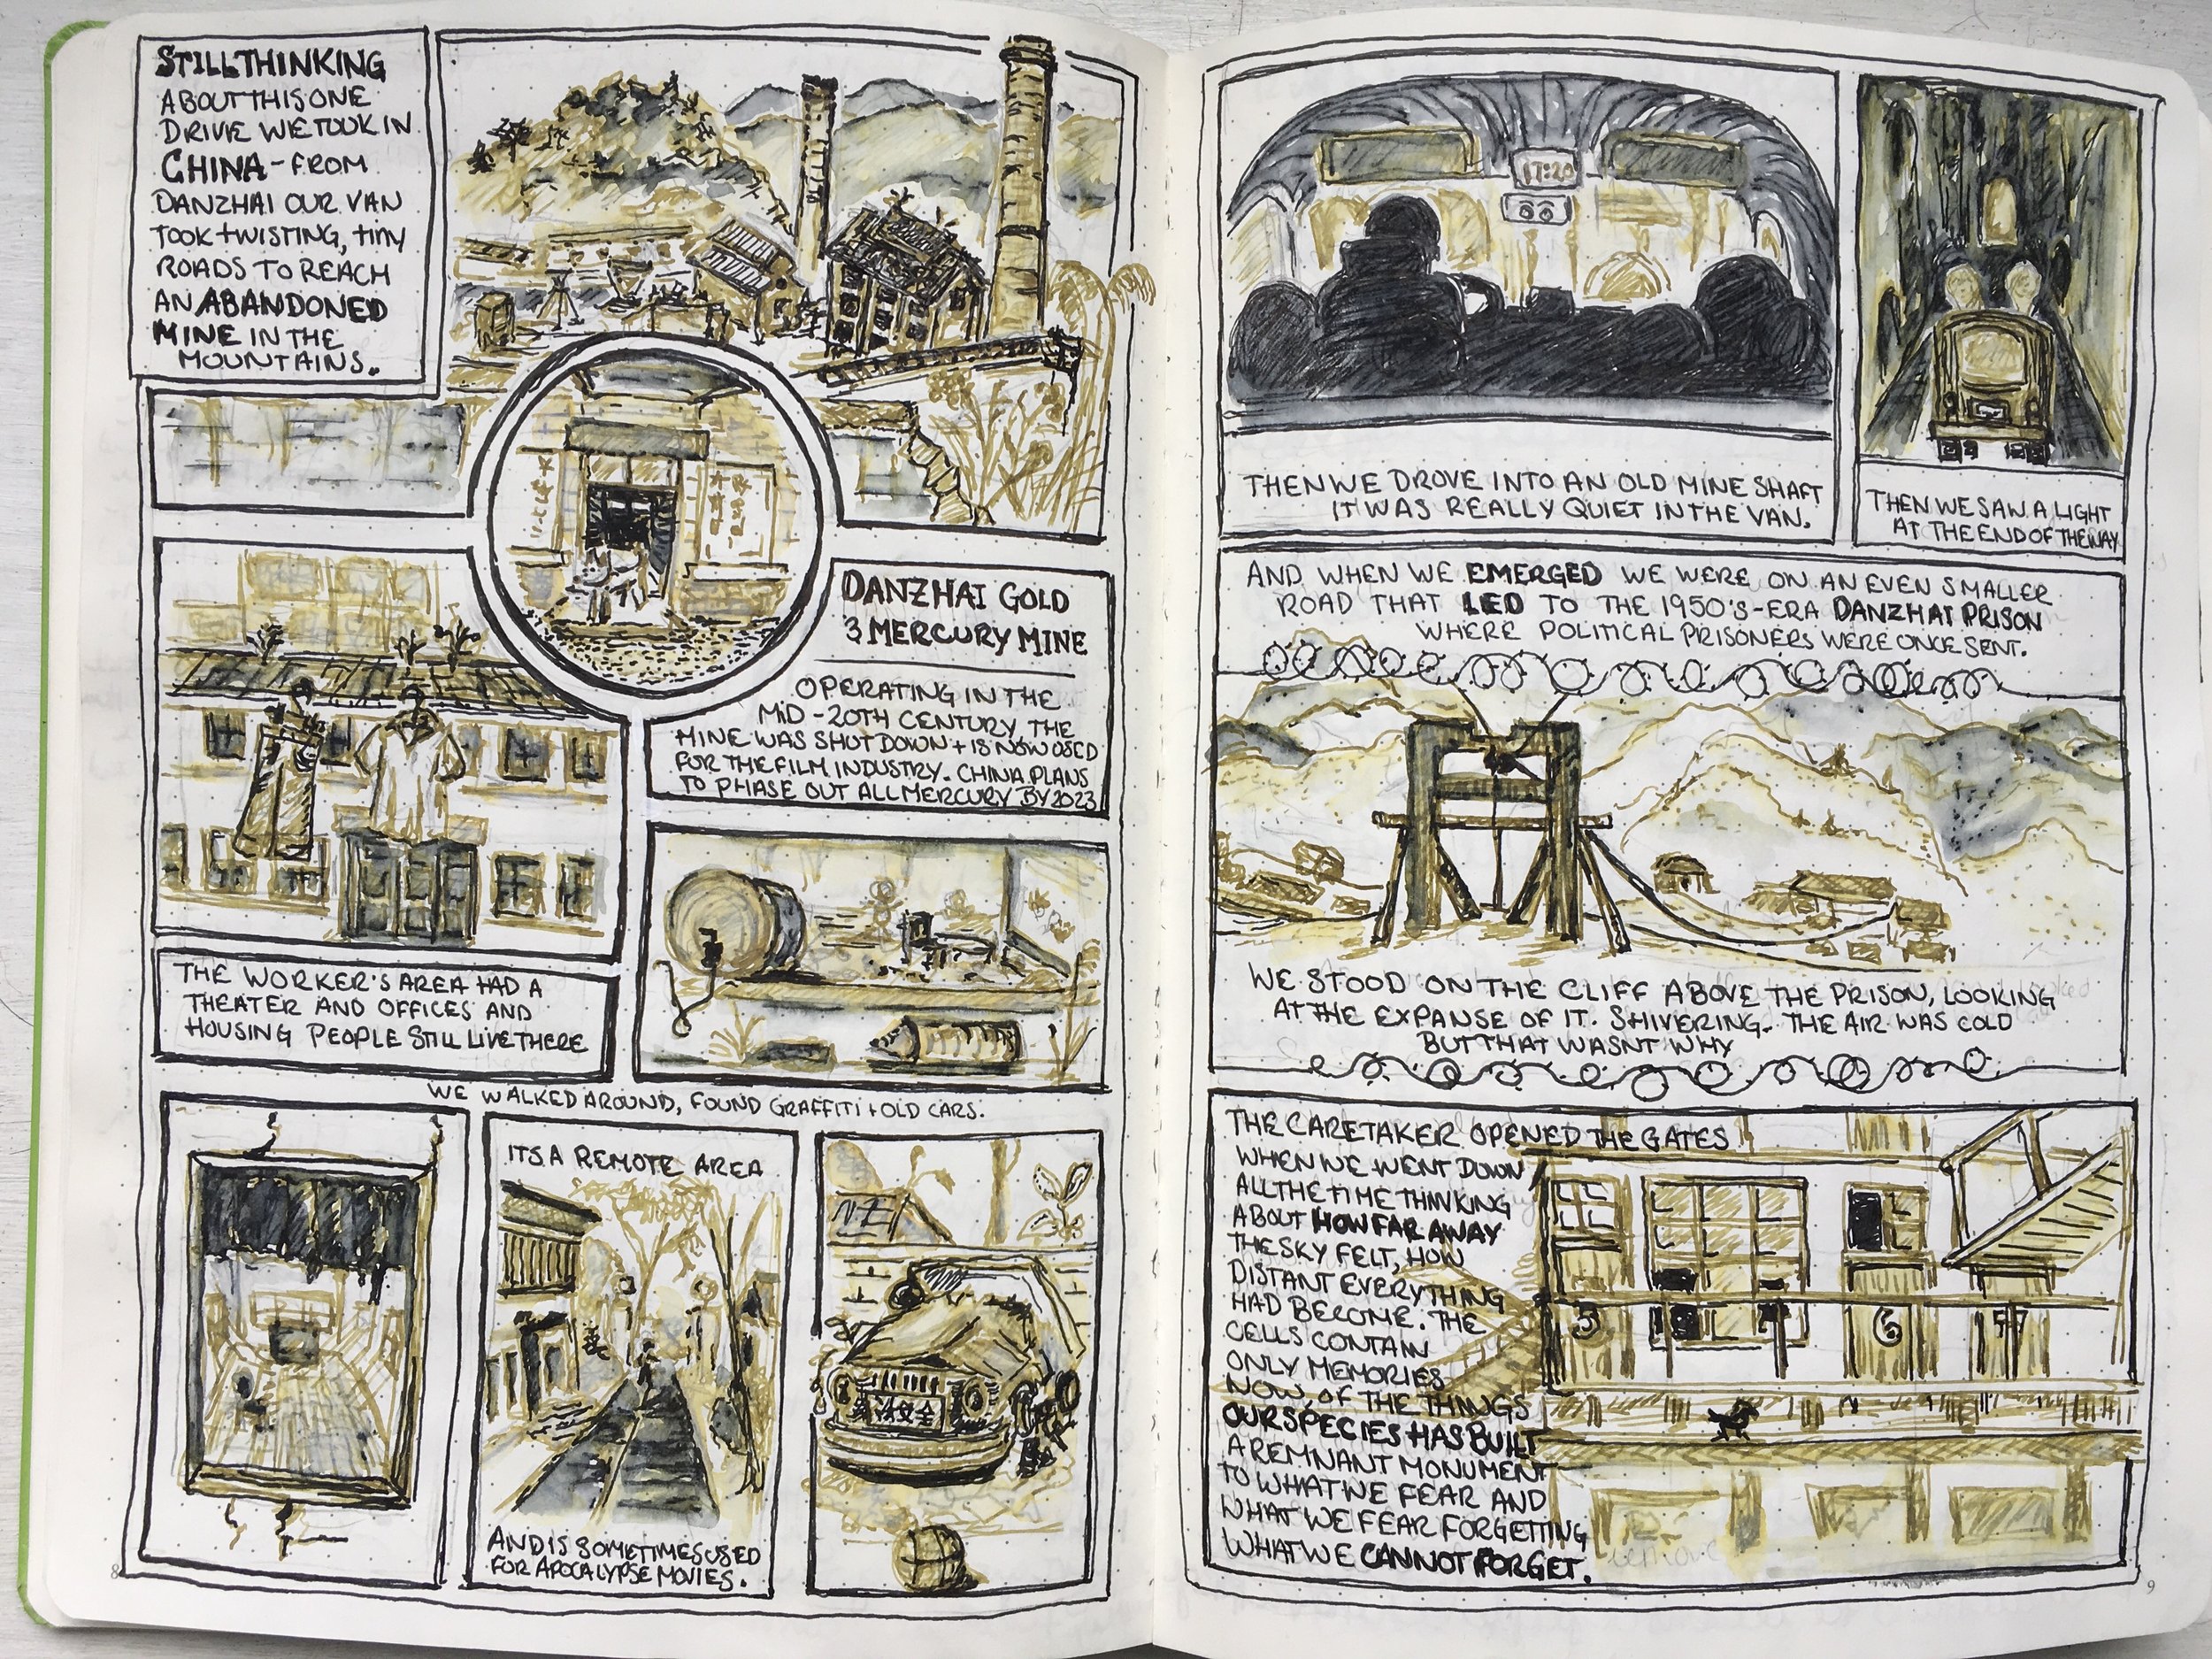 STILL THINKING
ABOUT THIS ONE
DRIVE WE TOOK IN
CHINA - FROM
DANZHAI OUR VAN
TOOK TWISTING, TINY
ROADS TO REACH
AN ABANDONED
MINE IN THE
MOUNTAINS.
DANZHAI GOLD
& MERCURY MINE
OPERATING IN THE
MID-20TH CENTURY, THE
MINE WAS SHUT DOWN + IS NOW USED
FOR THE FILM INDUSTRY. CHINA PLANS
TO PHASE OUT ALL MERCURY BY 2023
THE WORKER'S AREA HAD A
THEATER AND OFFICES AND
HOUSING PEOPLE STILL LIVE THERE
WE WALKED AROUND, FOUND GRAFFITI + OLD CARS.
ITS A REMOTE AREA
AND IS SOMETIMES USED
FOR APOCALYPSE MOVIES.
8
17:20
THEN WE DROVE INTO AN OLD MINE SHAFT
IT WAS REALLY QUIET IN THE VAN.
THEN WE SAW A LIGHT
AT THE END OF THE WAY
AND WHEN WE EMERGED WE WERE ON AN EVEN SMALLER
ROAD THAT LED TO THE 1950'S-ERA DANZHAI PRISON
WHERE POLITICAL PRISONERS WERE ONCE SENT.
WE STOOD ON THE CLIFF ABOVE THE PRISON, LOOKING
AT THE EXPANSE OF IT. SHIVERING. THE AIR WAS COLD
BUT THAT WASNT WHY
THE CARETAKER OPENED THE GATES
WHEN WE WENT DOWN
ALL THE TIME THINKING
ABOUT HOW FAR AWAY
THE SKY FELT, HOW
DISTANT EVERYTHING
HAD BECOME. THE
CELLS CONTAIN
ONLY MEMORIES
NOW, OF THE THINGS
OUR SPECIES HAS BUILT
A REMNANT MONUMENT
TO WHAT WE FEAR AND
WHAT WE FEAR FORGETTING
WHAT WE CANNOT FORGET.
5
6
9